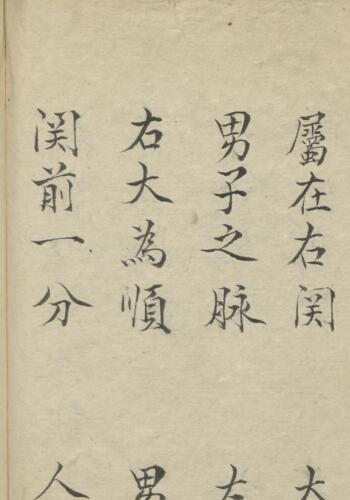 屬在右関 大
男子之脉 左
右大為順 男
関前一分 人